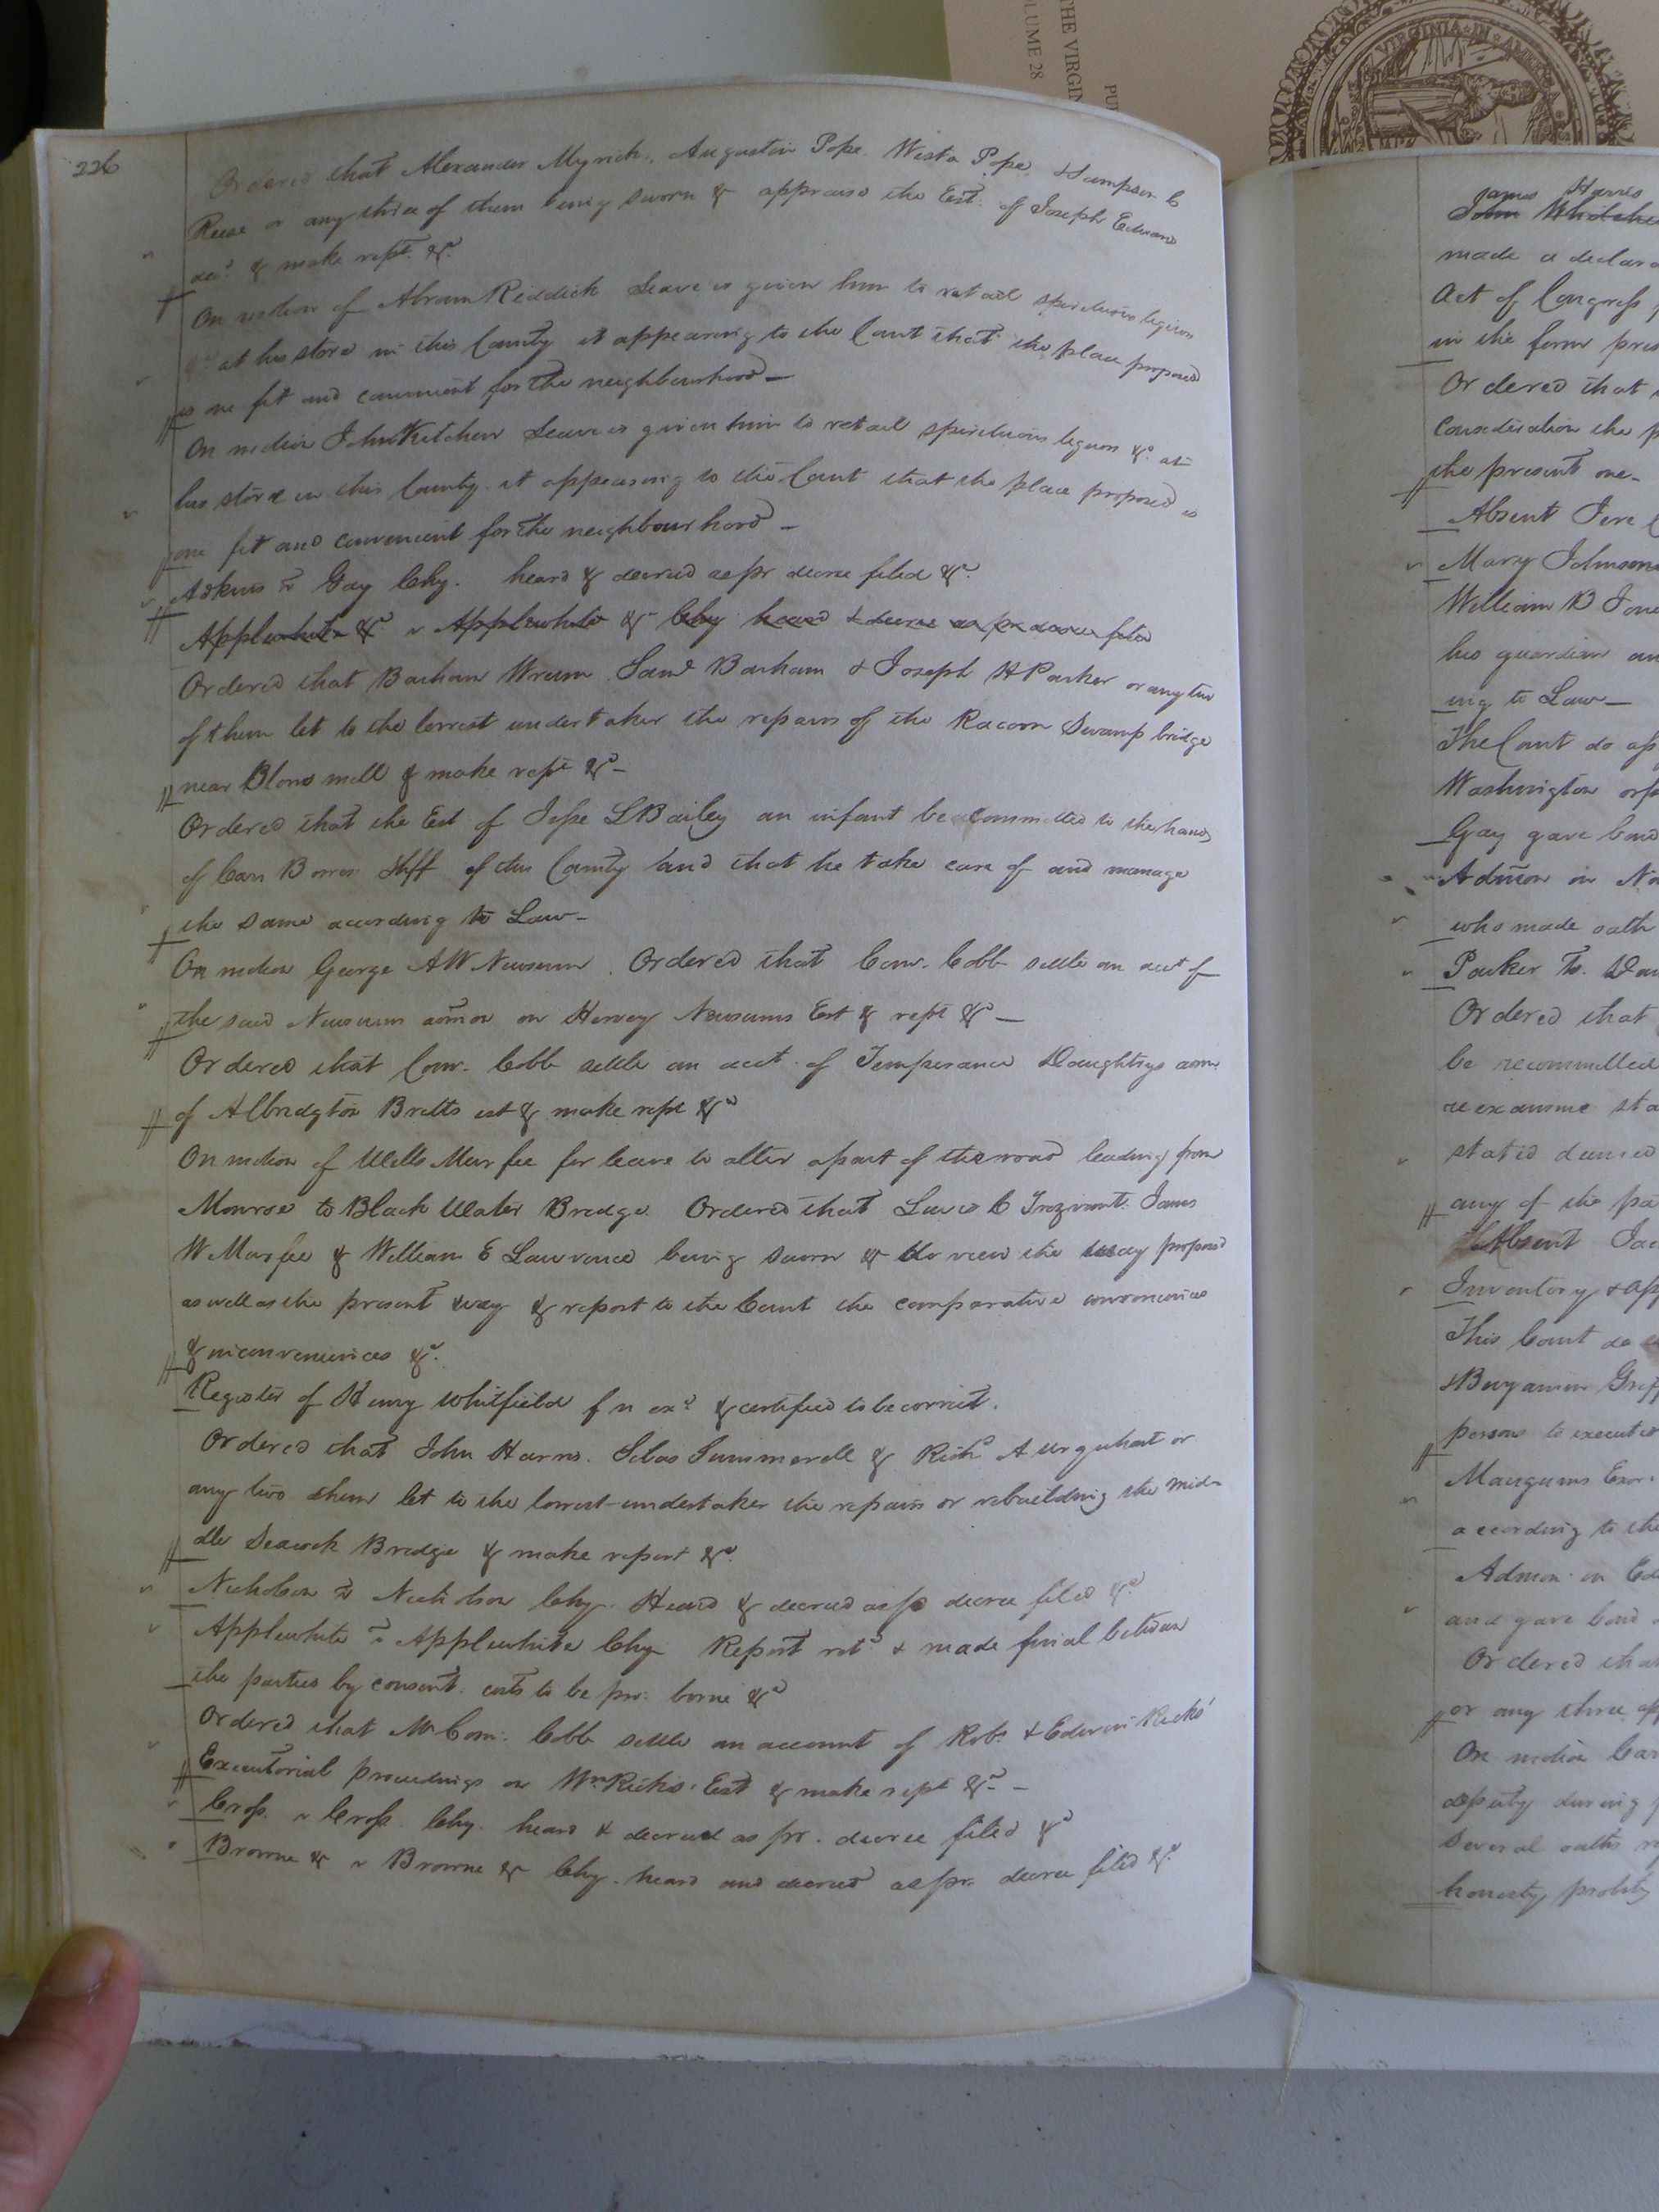 THE VIRGIN
LUME 28
PU
VIRGINIA IN
226
Ordered that Alexander Myrick, Augustin Pope, Weste Pope, & Sampson C
Reese or any three of them being sworn & appraise the Est. of Joseph Edwards
decd. & make rept. &c.
On motion of Abram Riddick Leave is given him to retail spirituous liquors
&c at his store in this County it appearing to the Court that the place proposed
is one fit and convenient for the neighbourhood—
On motion John Kitchen Leave is given him to retail spirituous liquors &c. at
his store in this County. it appearing to the Court that the place proposed is
one fit and convenient for the neighbourhood—
Adkins vs Gay Chy. heard & decreed as pr decree filed &c.
Applewhite &c v Applewhite &c Chy heard & decree as pr decree filed
Ordered that Barham Wrenn Saml Barham & Joseph H Parker or any two
of them let to the lowest undertaker the repairs of the Racoon Swamp bridge
near Blows mill & make rept &c—
Ordered that the Est of Jesse L Bailey an infant be committed to the hands
of Carr Bowers Shff of this County and that he take care of and manage
the same according to Law—
On motion George A W Newsum. Ordered that Comr. Cobb settle an acct of
the said Newsum admor on Harvey Newsums Est & rept &c—
Ordered that Comr. Cobb settle an acct. of Temperance Daughtrys admn
of Albridgton Britts est & make rept &c
On motion of Wells Murfee for leave to alter a part of the road leading from
Monroe to Black Water Bridge. Ordered that Lewis C Trezvant. James
W Murfee & William E Lawrence being sworn & do view the way proposed
as well as the present way & report to the Court the comparative conveniences
& inconveniences &c.
Register of Henry Whitfield f n exd & certified to be correct.
Ordered that John Harris. Silas Summerell & Richd A Urquhart or
any two them let to the lowest undertaker the repairs or rebuilding the mid-
dle Seacock Bridge & make report &c.
Nicholson vs Nicholson Chy. Heard & decreed as pr decree filed &c
Applewhite vs Applewhite Chy Report retd & made final between
the parties by consent. costs to be pr. borne &c
Ordered that Mr Com. Cobb settle an account of Robt & Edwin Ricks'
Executorial proceedings on Wm Ricks' Est & make rept &c—
Cross. v Cross. Chy. heard & decreed as pr. decree filed &c
Browne & v Browne & Chy. heard and decreed as pr. decree filed &c.
James Harris
John
made a declara
Act of Congress
in the form pres
Ordered that
Consideration the p
the present one-
Absent Jere
Mary Johnson
William B Jone
his guardian an
ing to Law—
The Court do ap
Washington orp
Gay gave bond
Admon on No
who made oath
Parker To. Dan
Ordered that
be recommitted
re examine sta
stated deemed
any of the pa
Absent Jac
Inventory & app
This Court do
& Benjamin Griff
persons to execute
Mangums Exor.
according to the
Admon. on Ed
and gave bond
Ordered that
or any three, ap
On motion Car
deputy during
Several oaths re
honesty probity